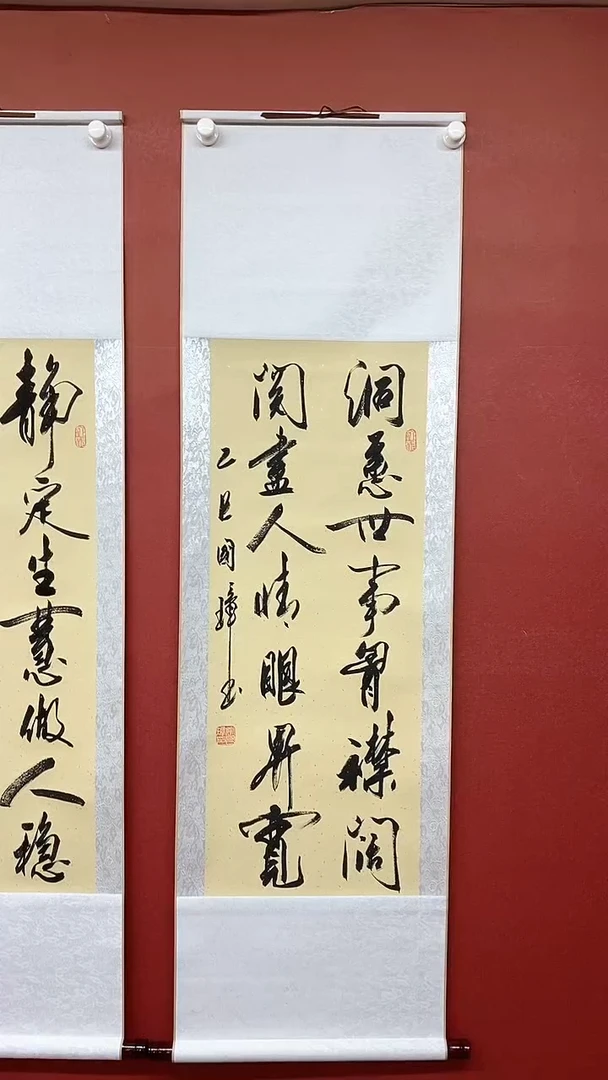 洞悉世事胷襟阔
阅盡人情眼界寬
乙巳國璋书
静定生慧做人稳